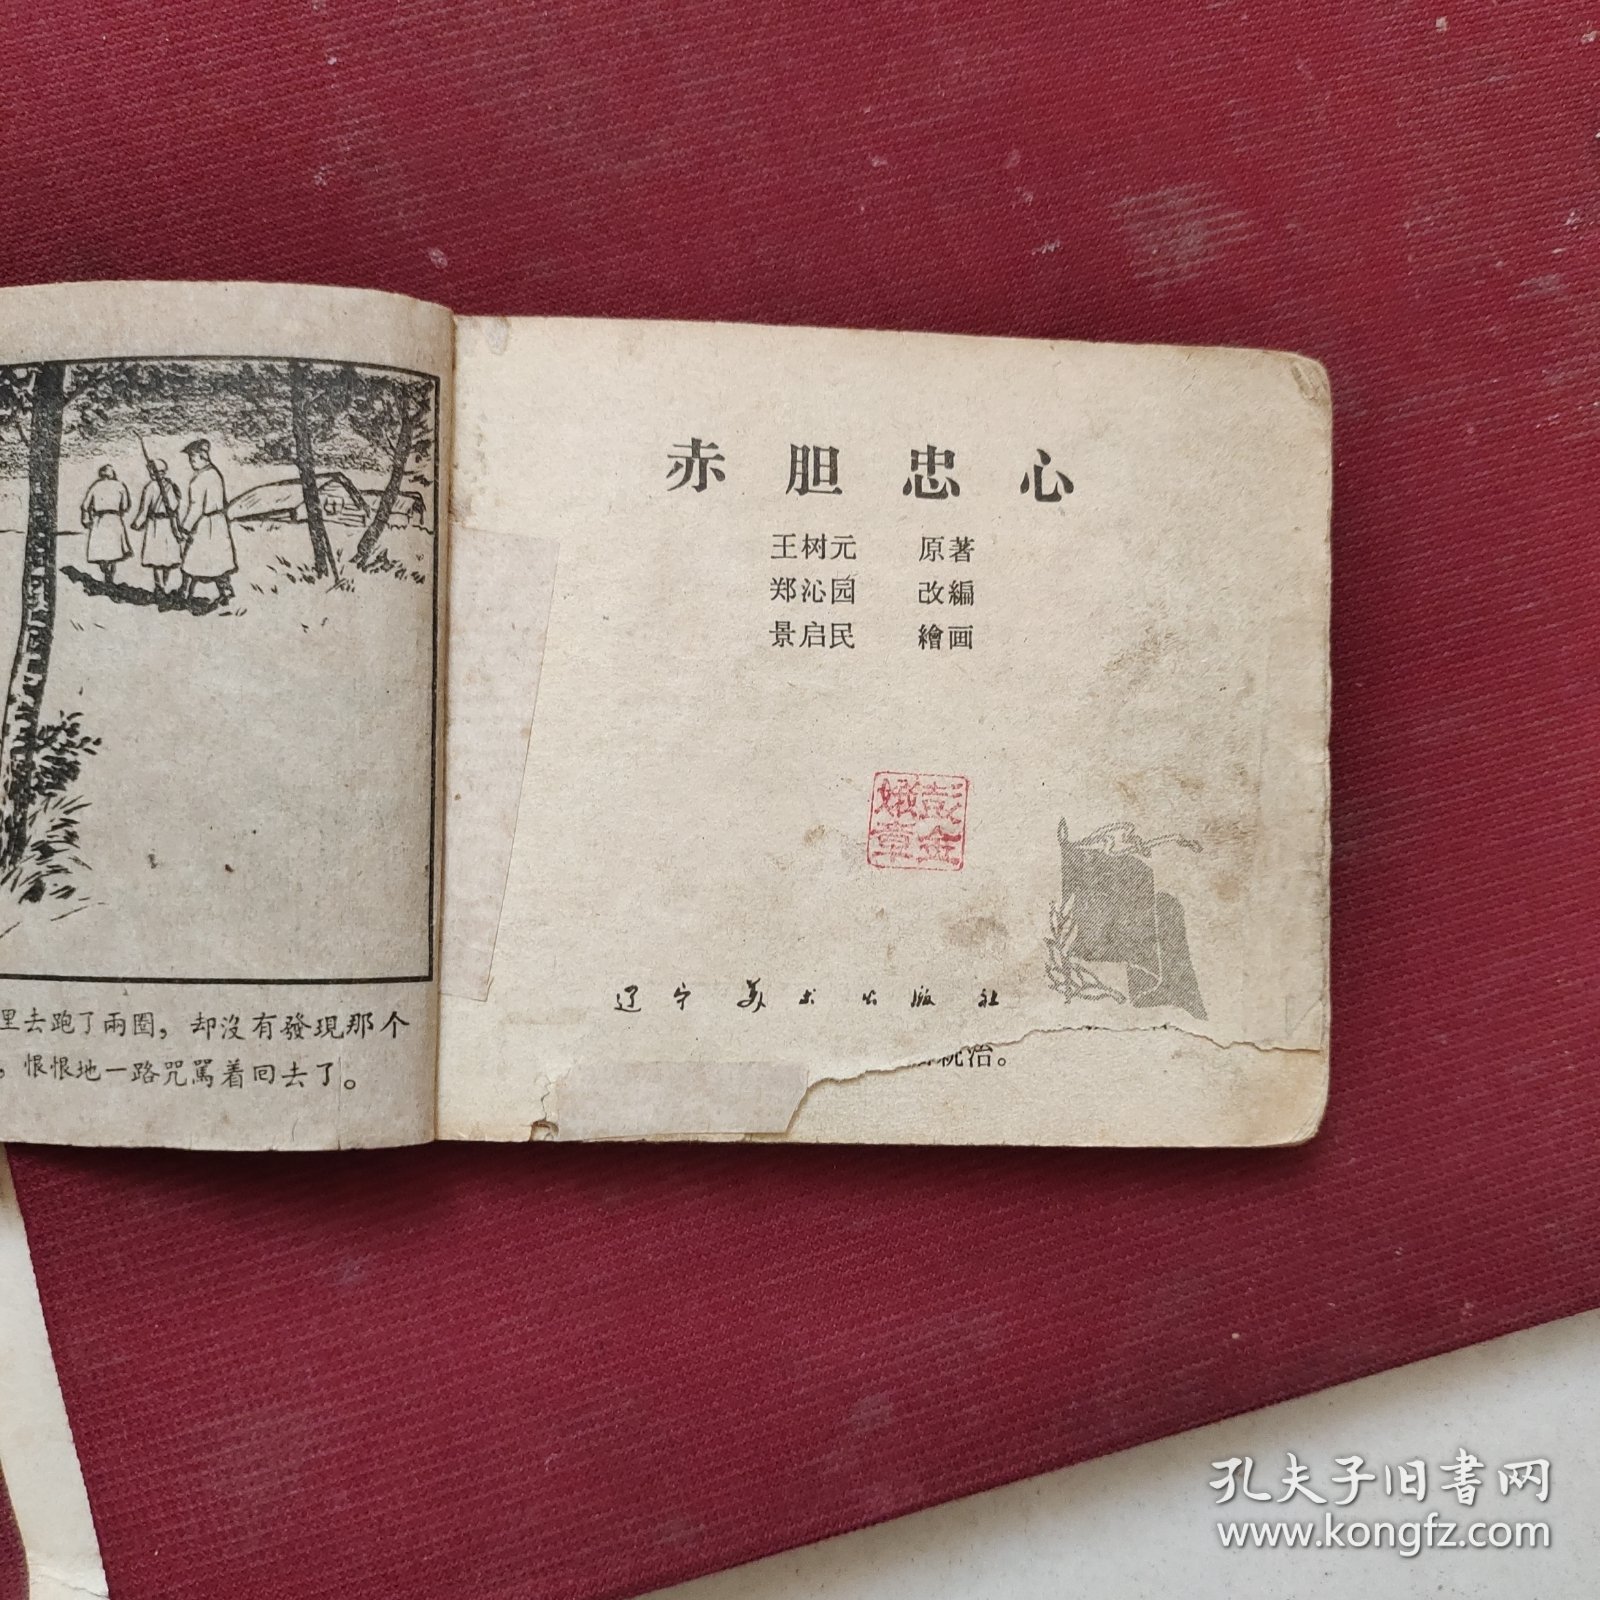 里去跑了兩圈，却沒有發現那个
，恨恨地一路咒駡着回去了。
赤胆忠心
王树元 原著
郑沁园 改編
景启民 繪画
彭金娥章
辽宁美术出版社
統治。
孔夫子旧书网
www.kongfz.com